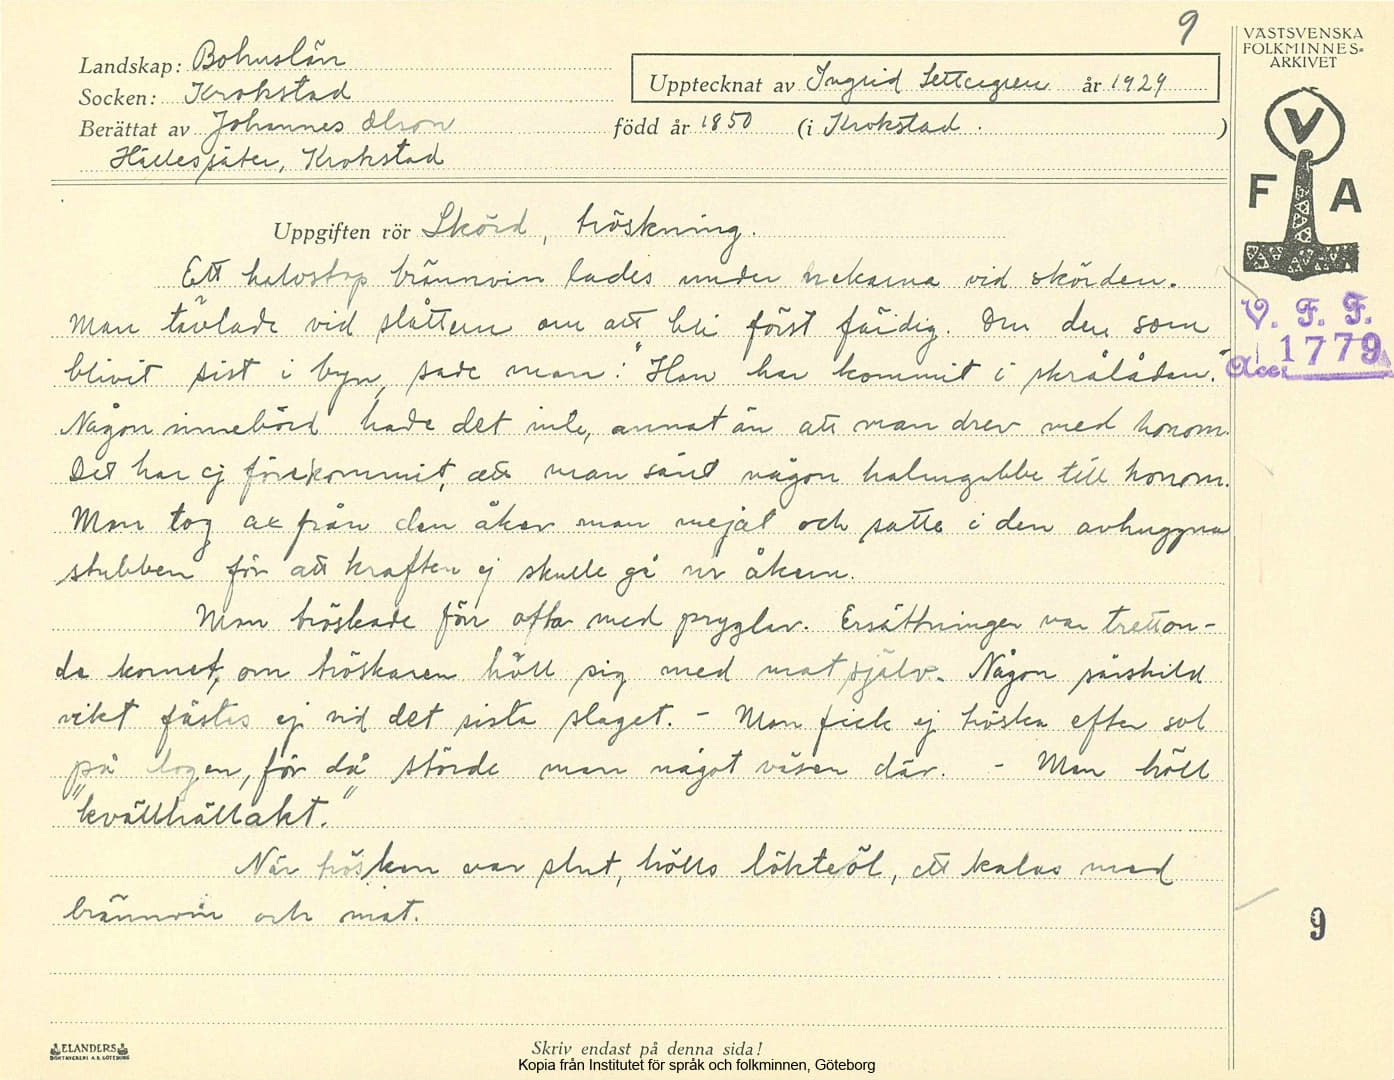 9
VÄSTSVENSKA
FOLKMINNES=
ARKIVET
Landskap: Bohuslän
Upptecknat av Ingrid år 1929
Socken: Krokstad
Berättat av Johannes Olson född år 1850 (i Krokstad. )
Hällesäter, Krokstad
V
F A
Uppgiften rör Skörd, tröskning.
Ett halvstop brännvin lades under nekarna vid skörden.
Man tävlade vid slåttern om att bli först färdig. Om den som
blivit sist i byn, sade man: "Han har kommit i skrålådan."
Någon innebörd hade det inte, annat än att man drev med honom.
Det har ej förekommit, att man sänt någon halmgubbe till honom.
Man tog ax från den åker man mejat och satte i den avhuggna
stubben för att kraften ej skulle gå ur åkern.
Man tröskade förr ofta med pryglar. Ersättningen var tretton-
de kornet, om tröskaren höll sig med mat själv. Någon särskild
vikt fästes ej vid det sista slaget. - Man fick ej tröska efter sol
på logen, för då störde man något väsen där. - Man höll
"kvällhällakt."
När trösken var slut, hölls lökteöl, ett kalas med
brännvin och mat.
V. F. F.
Acc. 1779
9
ELANDERS
BOKTRYCKERI A.B. GÖTEBORG
Skriv endast på denna sida!
Kopia från Institutet för språk och folkminnen, Göteborg